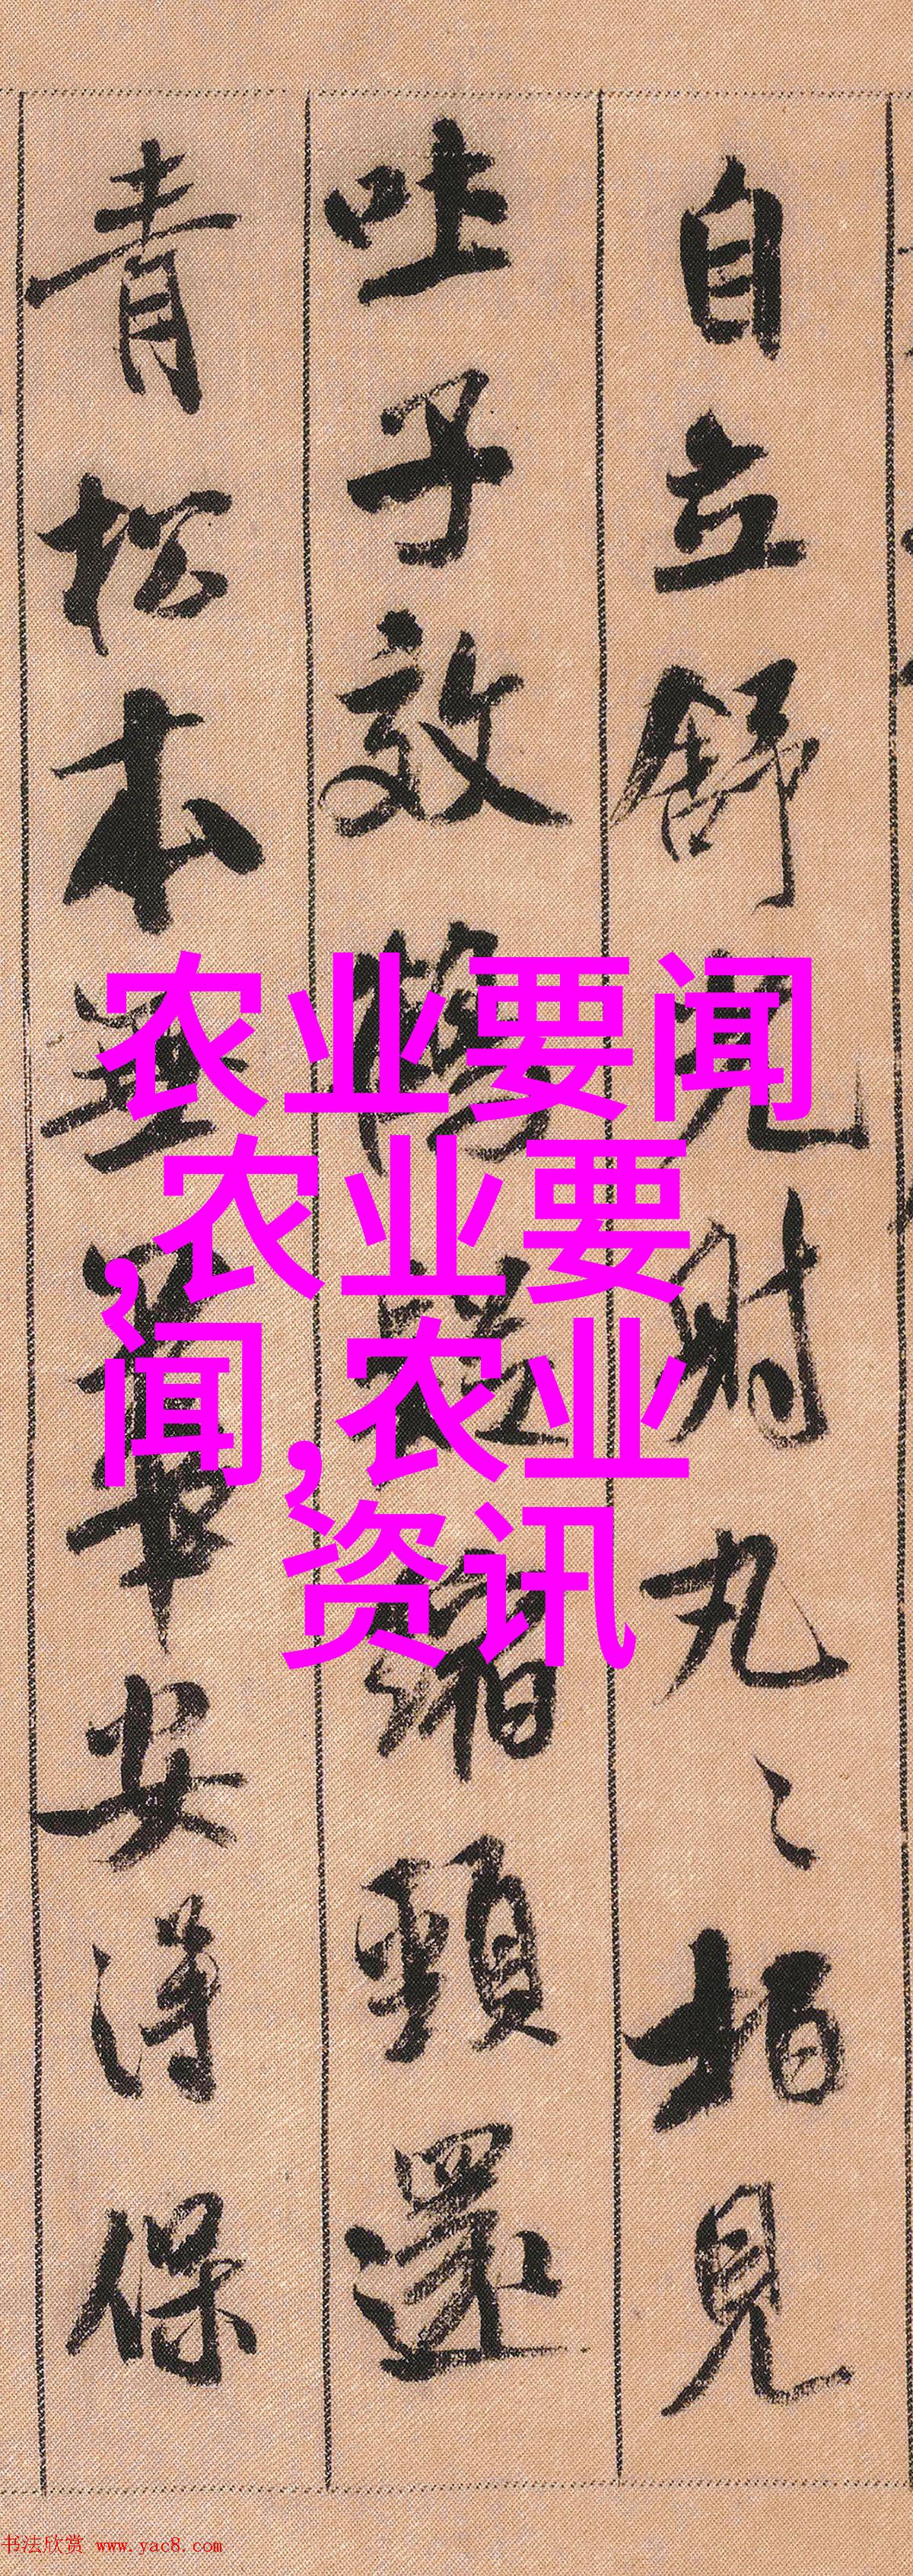 自立舒光射丸〻柏見
吐子效鶴疲縮頸還
青松本無華安得保
农业要闻
,农业要
闻,农业
资讯
书法欣赏 www.yac8.com